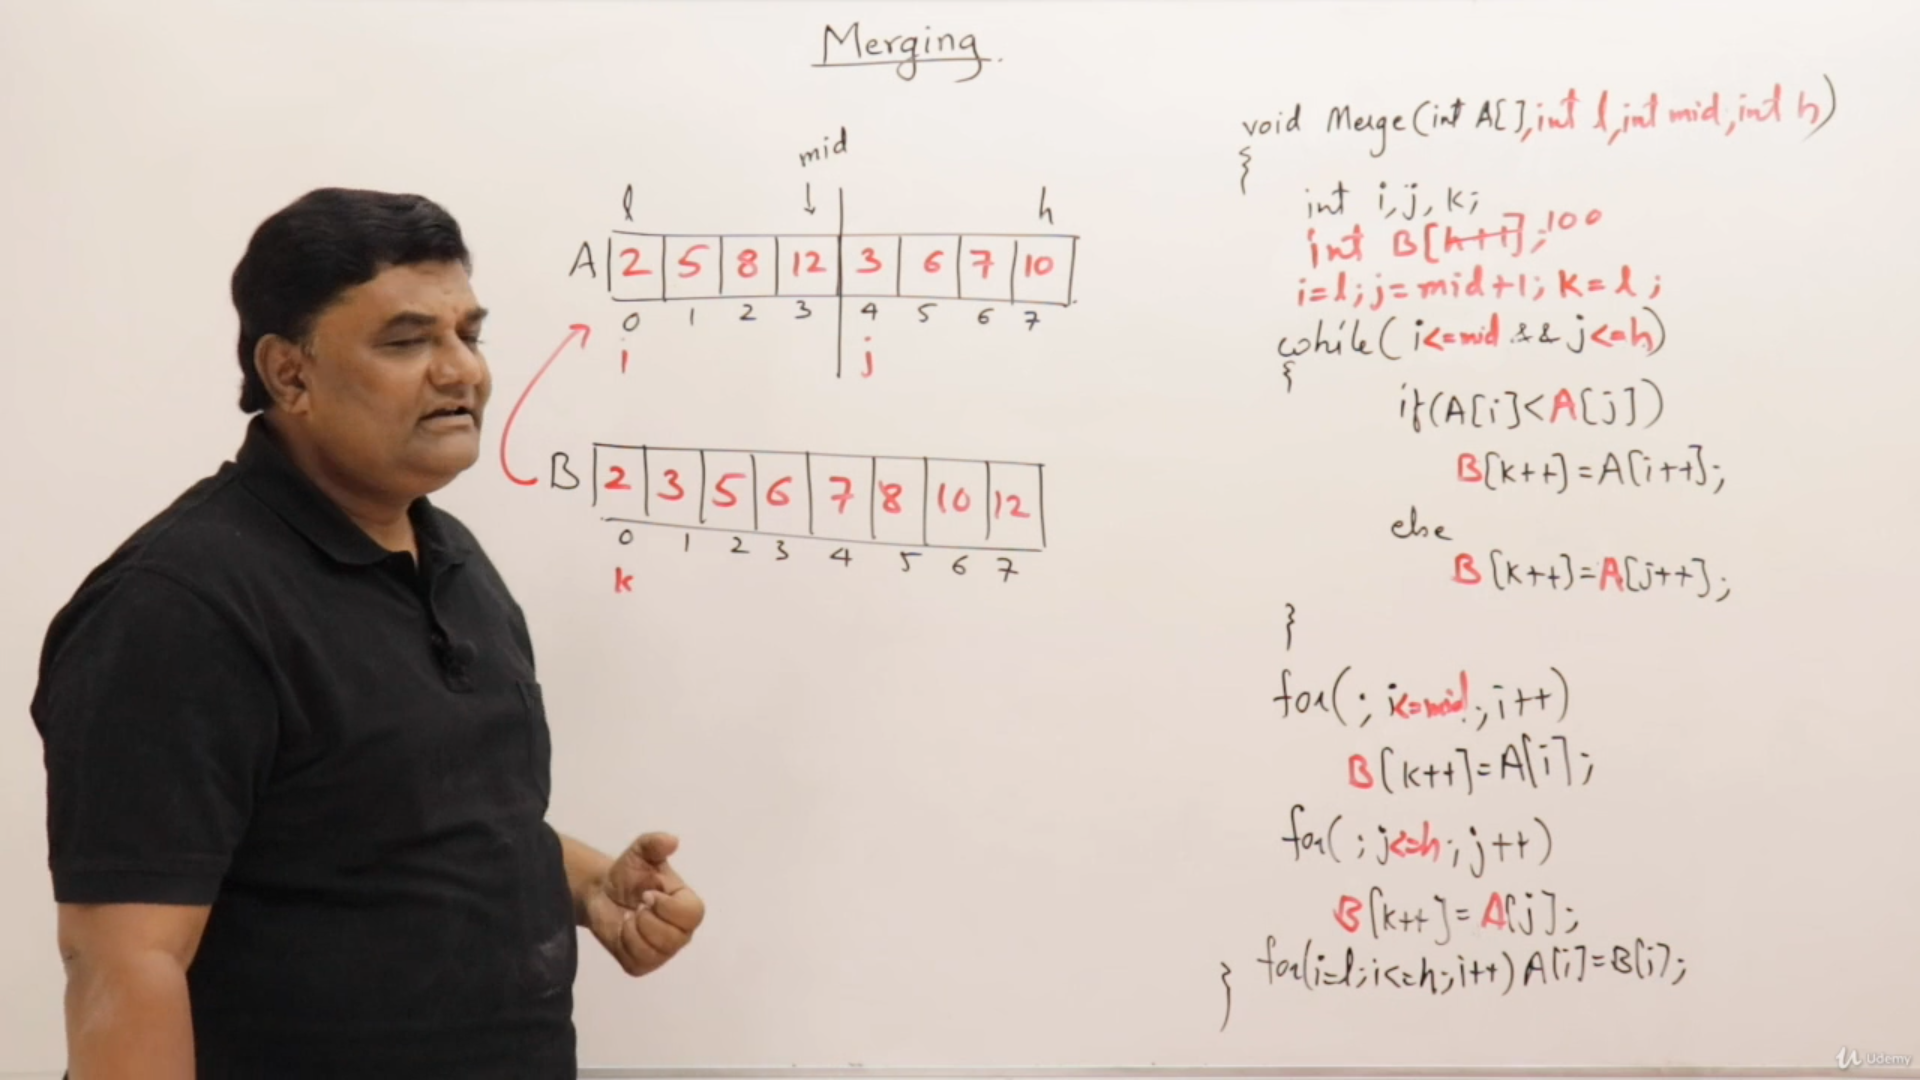 Merging
mid
l h
A 2 5 8 12 3 6 7 10
0 1 2 3 4 5 6 7
i j
B 2 3 5 6 7 8 10 12
0 1 2 3 4 5 6 7
k
void Merge(int A[],int l,int mid,int h)
{
int i,j,k;
int B[h+1];100
i=l;j=mid+1;k=l;
while(i<=mid && j<=h)
{
if(A[i]<A[j])
B[k++]=A[i++];
else
B[k++]=A[j++];
}
for(;i<=mid;i++)
B[k++]=A[i];
for(;j<=h;j++)
B[k++]=A[j];
for(i=l;i<=h;i++)A[i]=B[i];
}
Udemy